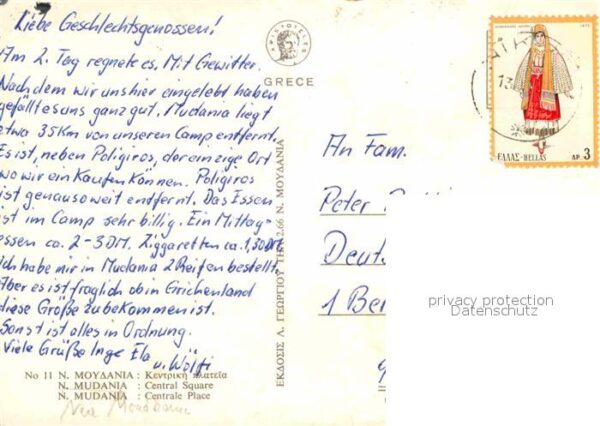 Liebe Geschlechtsgenossen!
Am 2. Tag regnete es. Mit Gewitter.
Nachdem wir uns hier eingelebt haben
gefällt es uns ganz gut. Mudania liegt
etwa 35 Km von unseren Camp entfernt.
Es ist, neben Poligiros, der einzige Ort
wo wir ein Kaufen Können. Poligiros
ist genauso weit entfernt. Das Essen
ist im Camp sehr billig. Ein Mittag-
essen ca. 2-3DM. Ziggaretten ca. 1,30DM
Ich habe mir in Mudania 2 Reifen bestellt
Aber es ist fraglich ob in Grichenland
diese Größe zubekommen ist.
Sonst ist alles in Ordnung.
Viele Grüße Inge Ela
u. Wölfi
No 11 Ν. ΜΟΥΔΑΝΙΑ : Κεντρική πλατεῖα
N. MUDANIA : Central Square
N. MUDANIA : Centrale Place
Nea
ARISTOTELES
GRECE
ΕΚΔΟΣΙΣ Λ. ΓΕΩΡΓΙΟΥ ΤΗΛ. 2.66 Ν. ΜΟΥΔΑΝΙΑ
ΕΛΛΑΣ-HELLAS ΔΡ. 3
13
An Fam.
Peter
Deut
1 Ber
privacy protection
Datenschutz